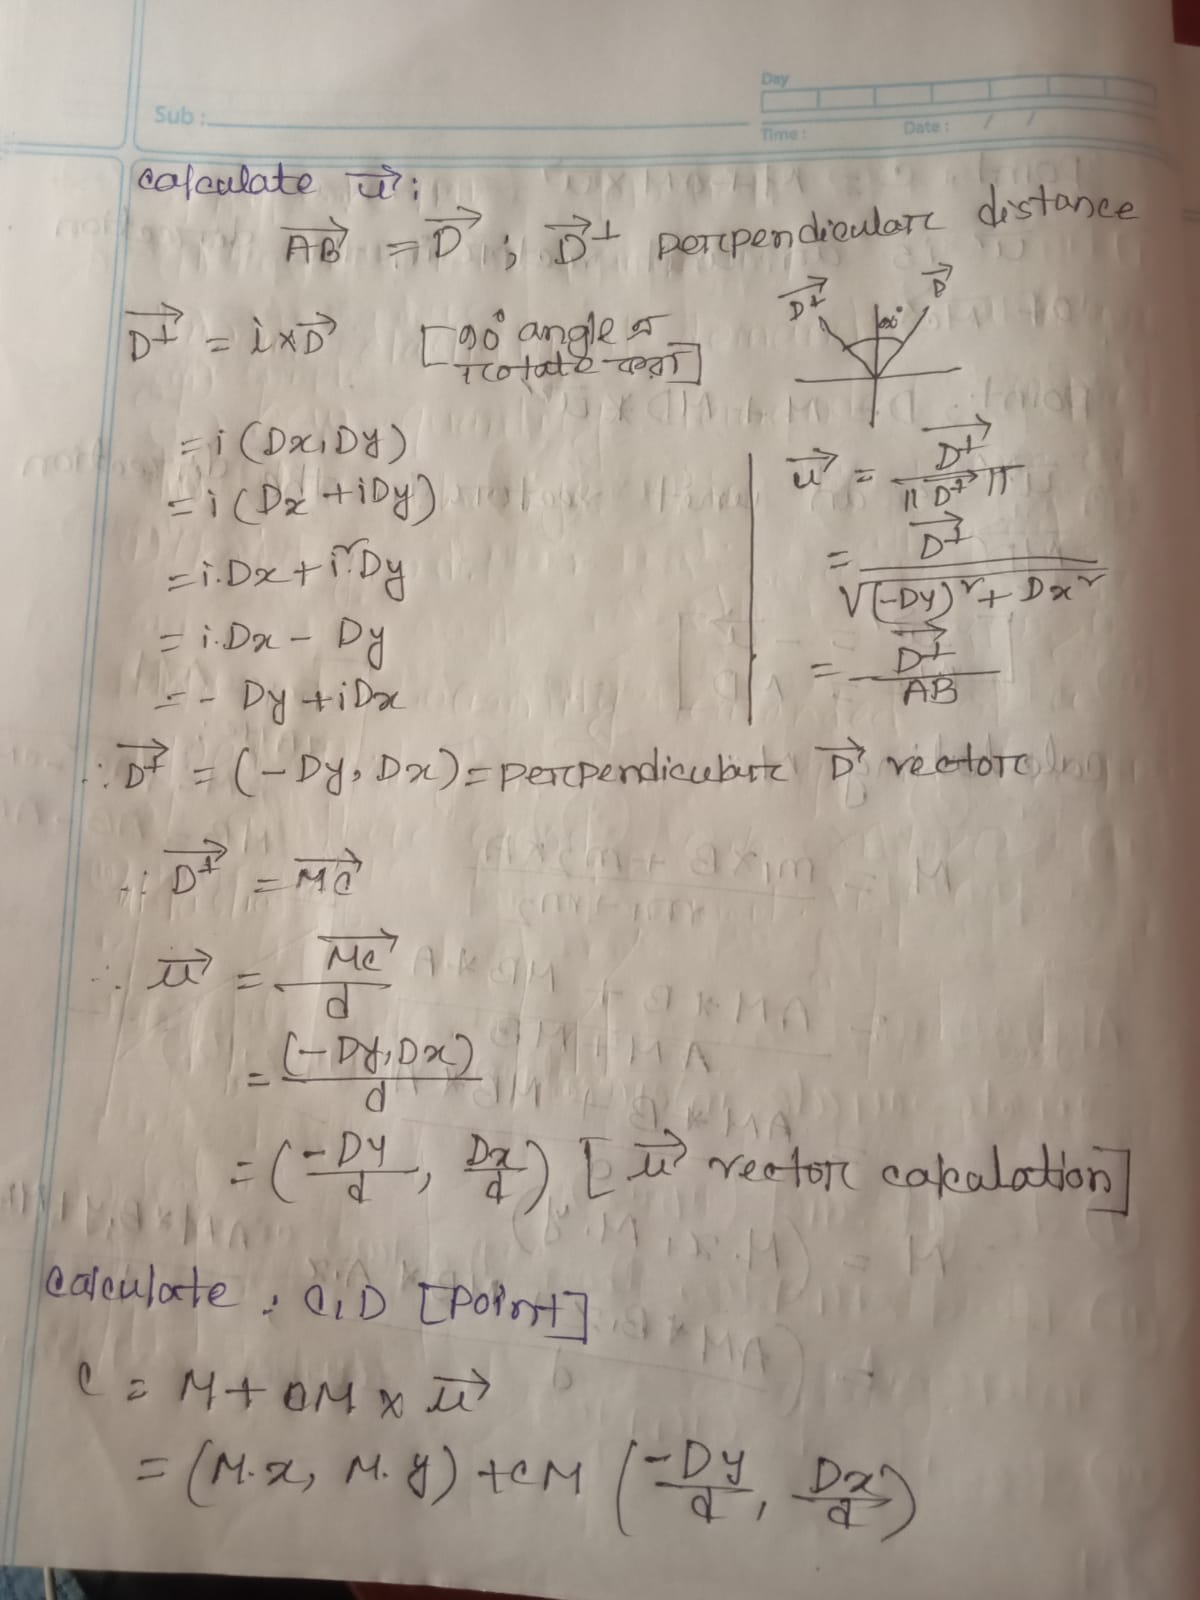 Day
Sub :
Time :
Date : / /
calculate u⃗ :
AB⃗ = D⃗ ; D⃗⊥ perpendicular distance
D⃗⊥ = i × D⃗ [90° angle এ
rotate করা]
D⃗⊥ D⃗
90°
= i (Dx, Dy)
= i (Dx + iDy)
= i.Dx + i².Dy
= i.Dx - Dy
= - Dy + iDx
u⃗ = D⃗⊥ / ||D⃗⊥||
= D⃗⊥ / √(-Dy)² + Dx²
= D⃗⊥ / AB
∴ D⃗⊥ = (-Dy, Dx) = perpendicular D⃗ vector
∴ D⃗⊥ = MC⃗
∴ u⃗ = MC⃗ / d
= (-Dy, Dx) / d
= (-Dy/d, Dx/d) [u⃗ vector calculation]
calculate : C, D [Point]
C = M + CM × u⃗
= (M.x, M.y) + CM (-Dy/d, Dx/d)